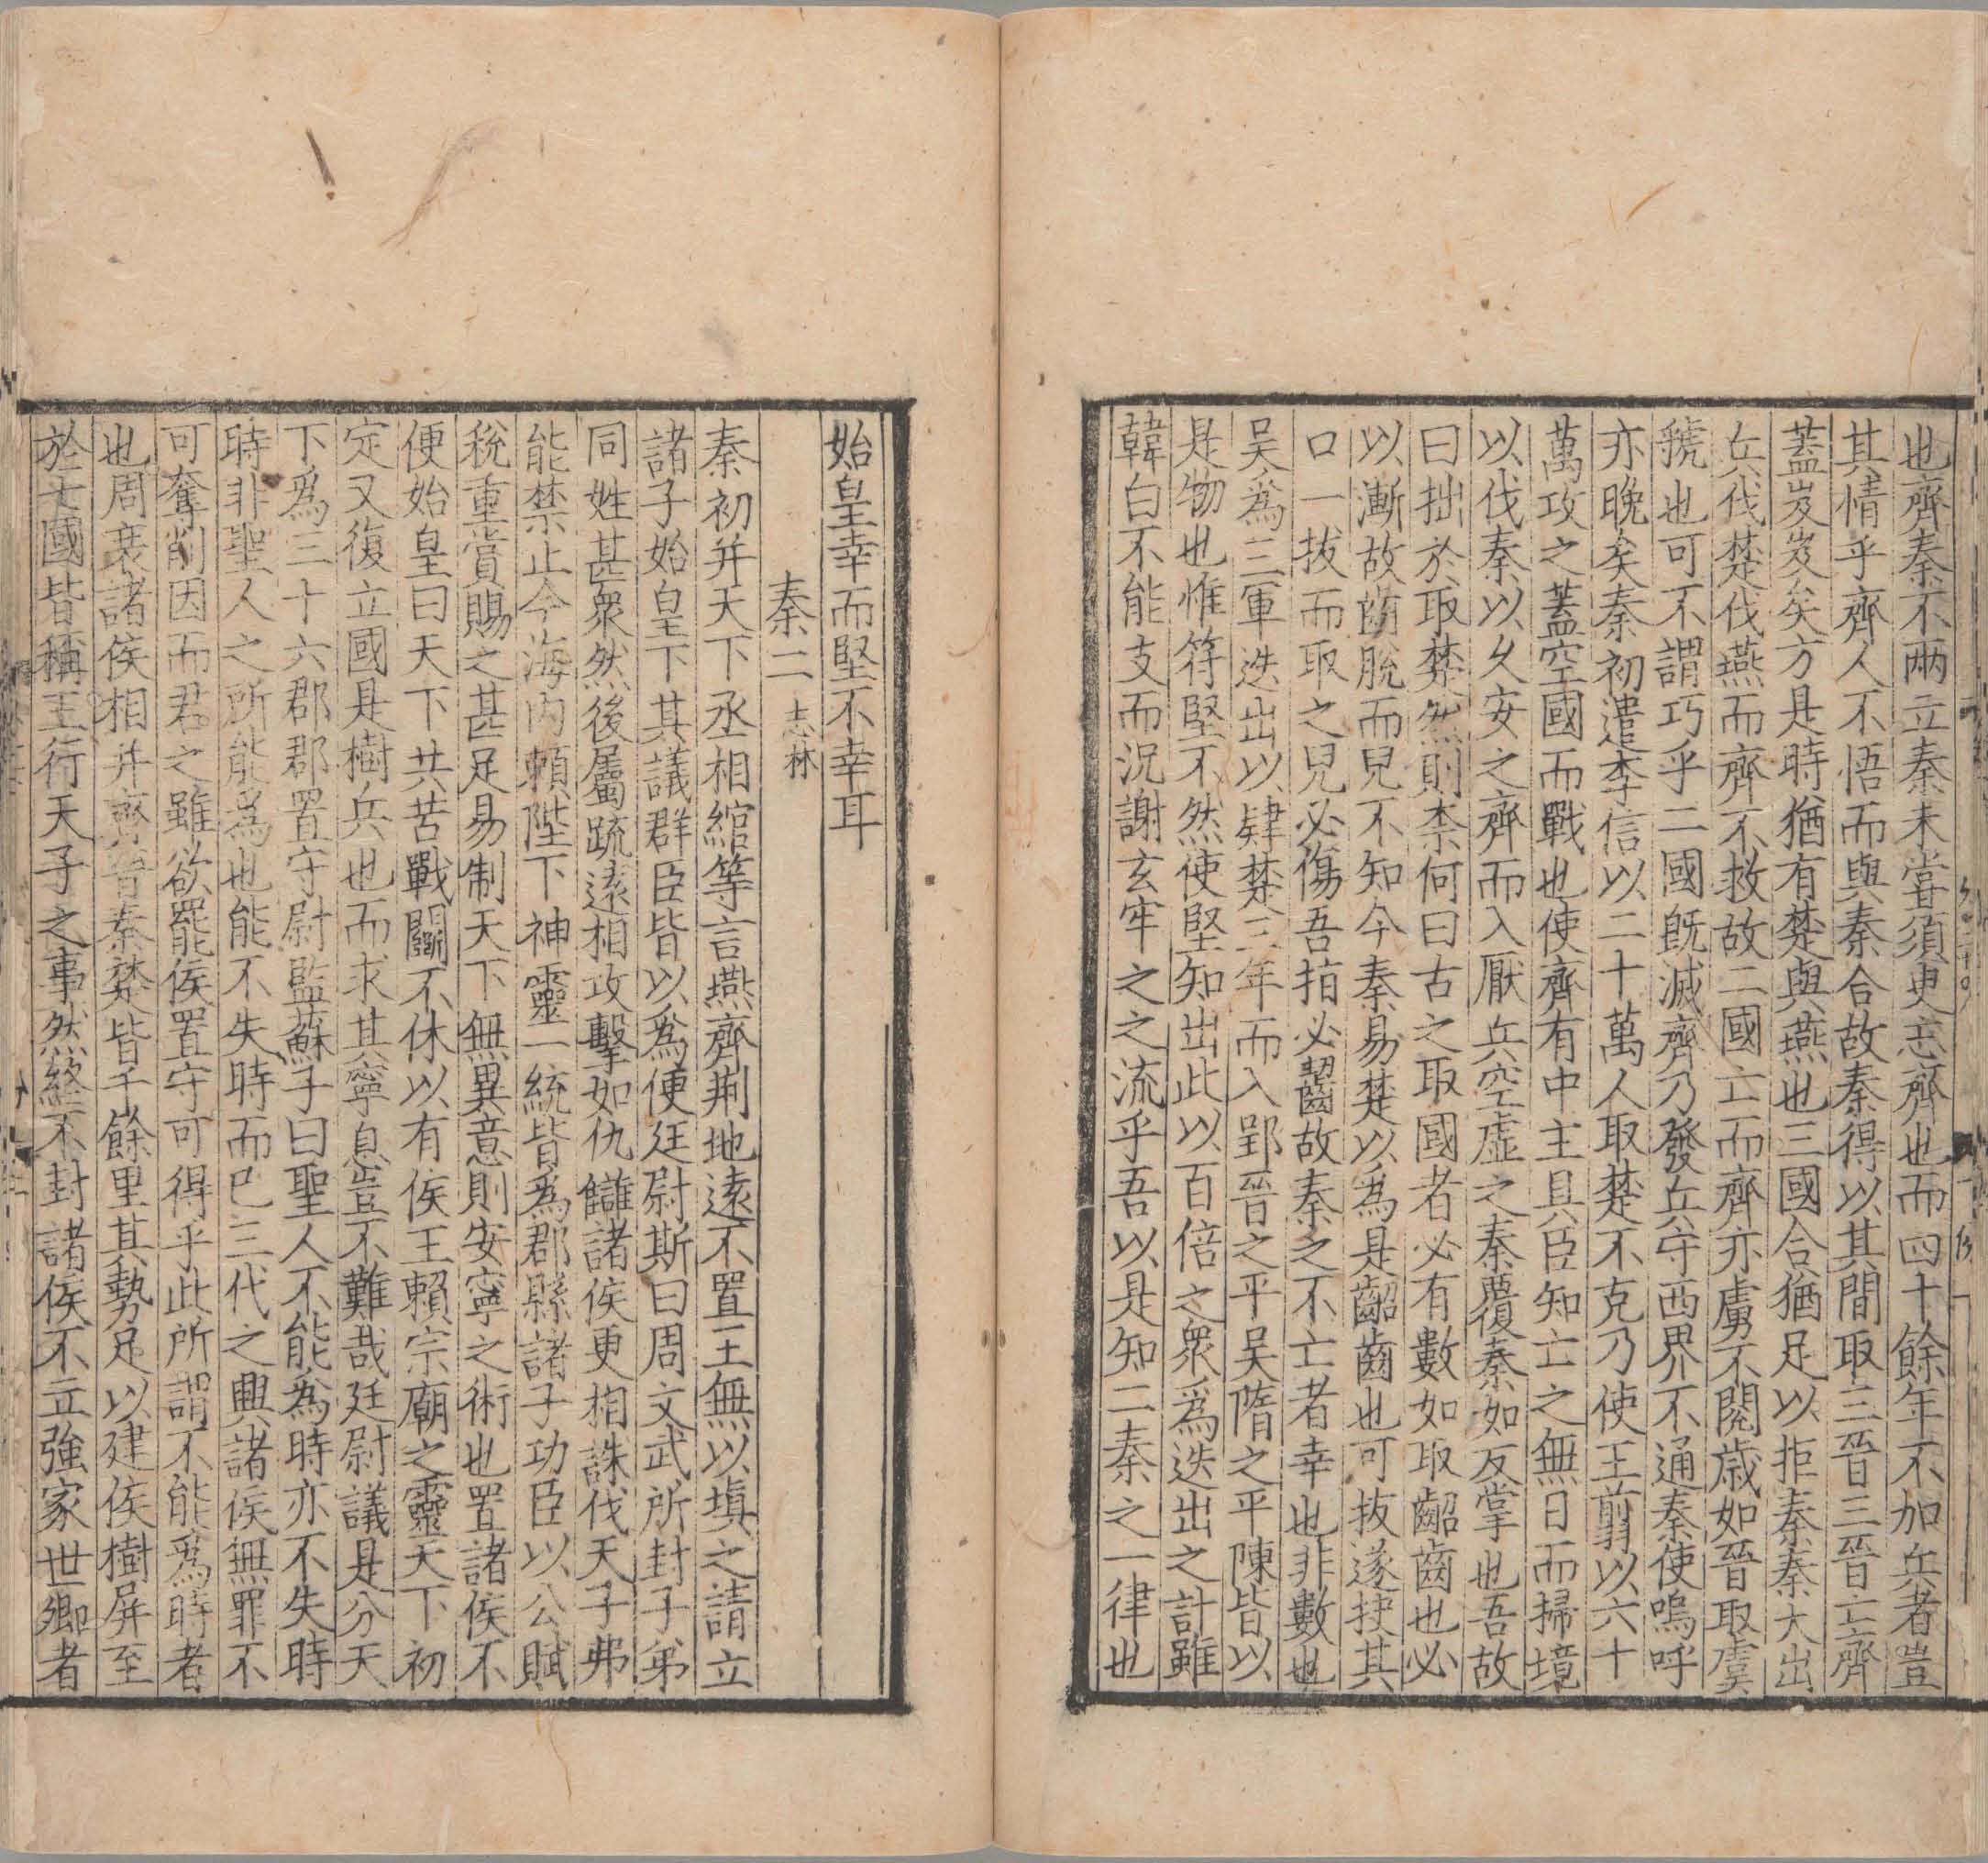 也齊秦不兩立秦未甞須臾忘齊也而四十餘年不加兵者豈
其情乎齊人不悟而與秦合故秦得以其間取三晉三晉亡齊
蓋岌岌矣方是時猶有楚與燕也三國合猶足以拒秦秦大出
兵伐楚伐燕而齊不救故二國亡而齊亦虜不閱歲如晉取虞
虢也可不謂巧乎二國既滅齊乃發兵守西界不通秦使嗚呼
亦晚矣秦初遣李信以二十萬人取楚不克乃使王翦以六十
萬攻之蓋空國而戰也使齊有中主具臣知亡之無日而掃境
以伐秦以久安之齊而入厭兵空虛之秦覆秦如反掌也吾故
曰拙於取楚然則柰何曰古之取國者必有數如取齠齒也必
以漸故齒脫而兒不知今秦易楚以為是齠齒也可拔遂抉其
口一拔而取之兒必傷吾指必齧故秦之不亡者幸也非數也
吳為三軍迭出以肄楚三年而入郢晉之平吳隋之平陳皆以
是物也惟符堅不然使堅知出此以百倍之眾為迭出之計雖
韓白不能支而況謝玄牢之之流乎吾以是知二秦之一律也
始皇幸而堅不幸耳
秦二 志林
秦初并天下丞相綰等言燕齊荆地遠不置王無以塡之請立
諸子始皇下其議群臣皆以為便廷尉斯曰周文武所封子弟
同姓甚眾然後屬疏遠相攻擊如仇讎諸侯更相誅伐天子弗
能禁止今海內賴陛下神靈一統皆為郡縣諸子功臣以公賦
稅重賞賜之甚足易制天下無異意則安寧之術也置諸侯不
便始皇曰天下共苦戰鬬不休以有侯王賴宗廟之靈天下初
定又復立國是樹兵也而求其寧息豈不難哉廷尉議是分天
下為三十六郡郡置守尉監蘇子曰聖人不能為時亦不失時
時非聖人之所能為也能不失時而已三代之興諸侯無罪不
可奪削因而君之雖欲罷侯置守可得乎此所謂不能為時者
也周衰諸侯相并齊晉秦楚皆千餘里其勢足以建侯樹屏至
於七國皆稱王行天子之事然終不封諸侯不立強家世卿者